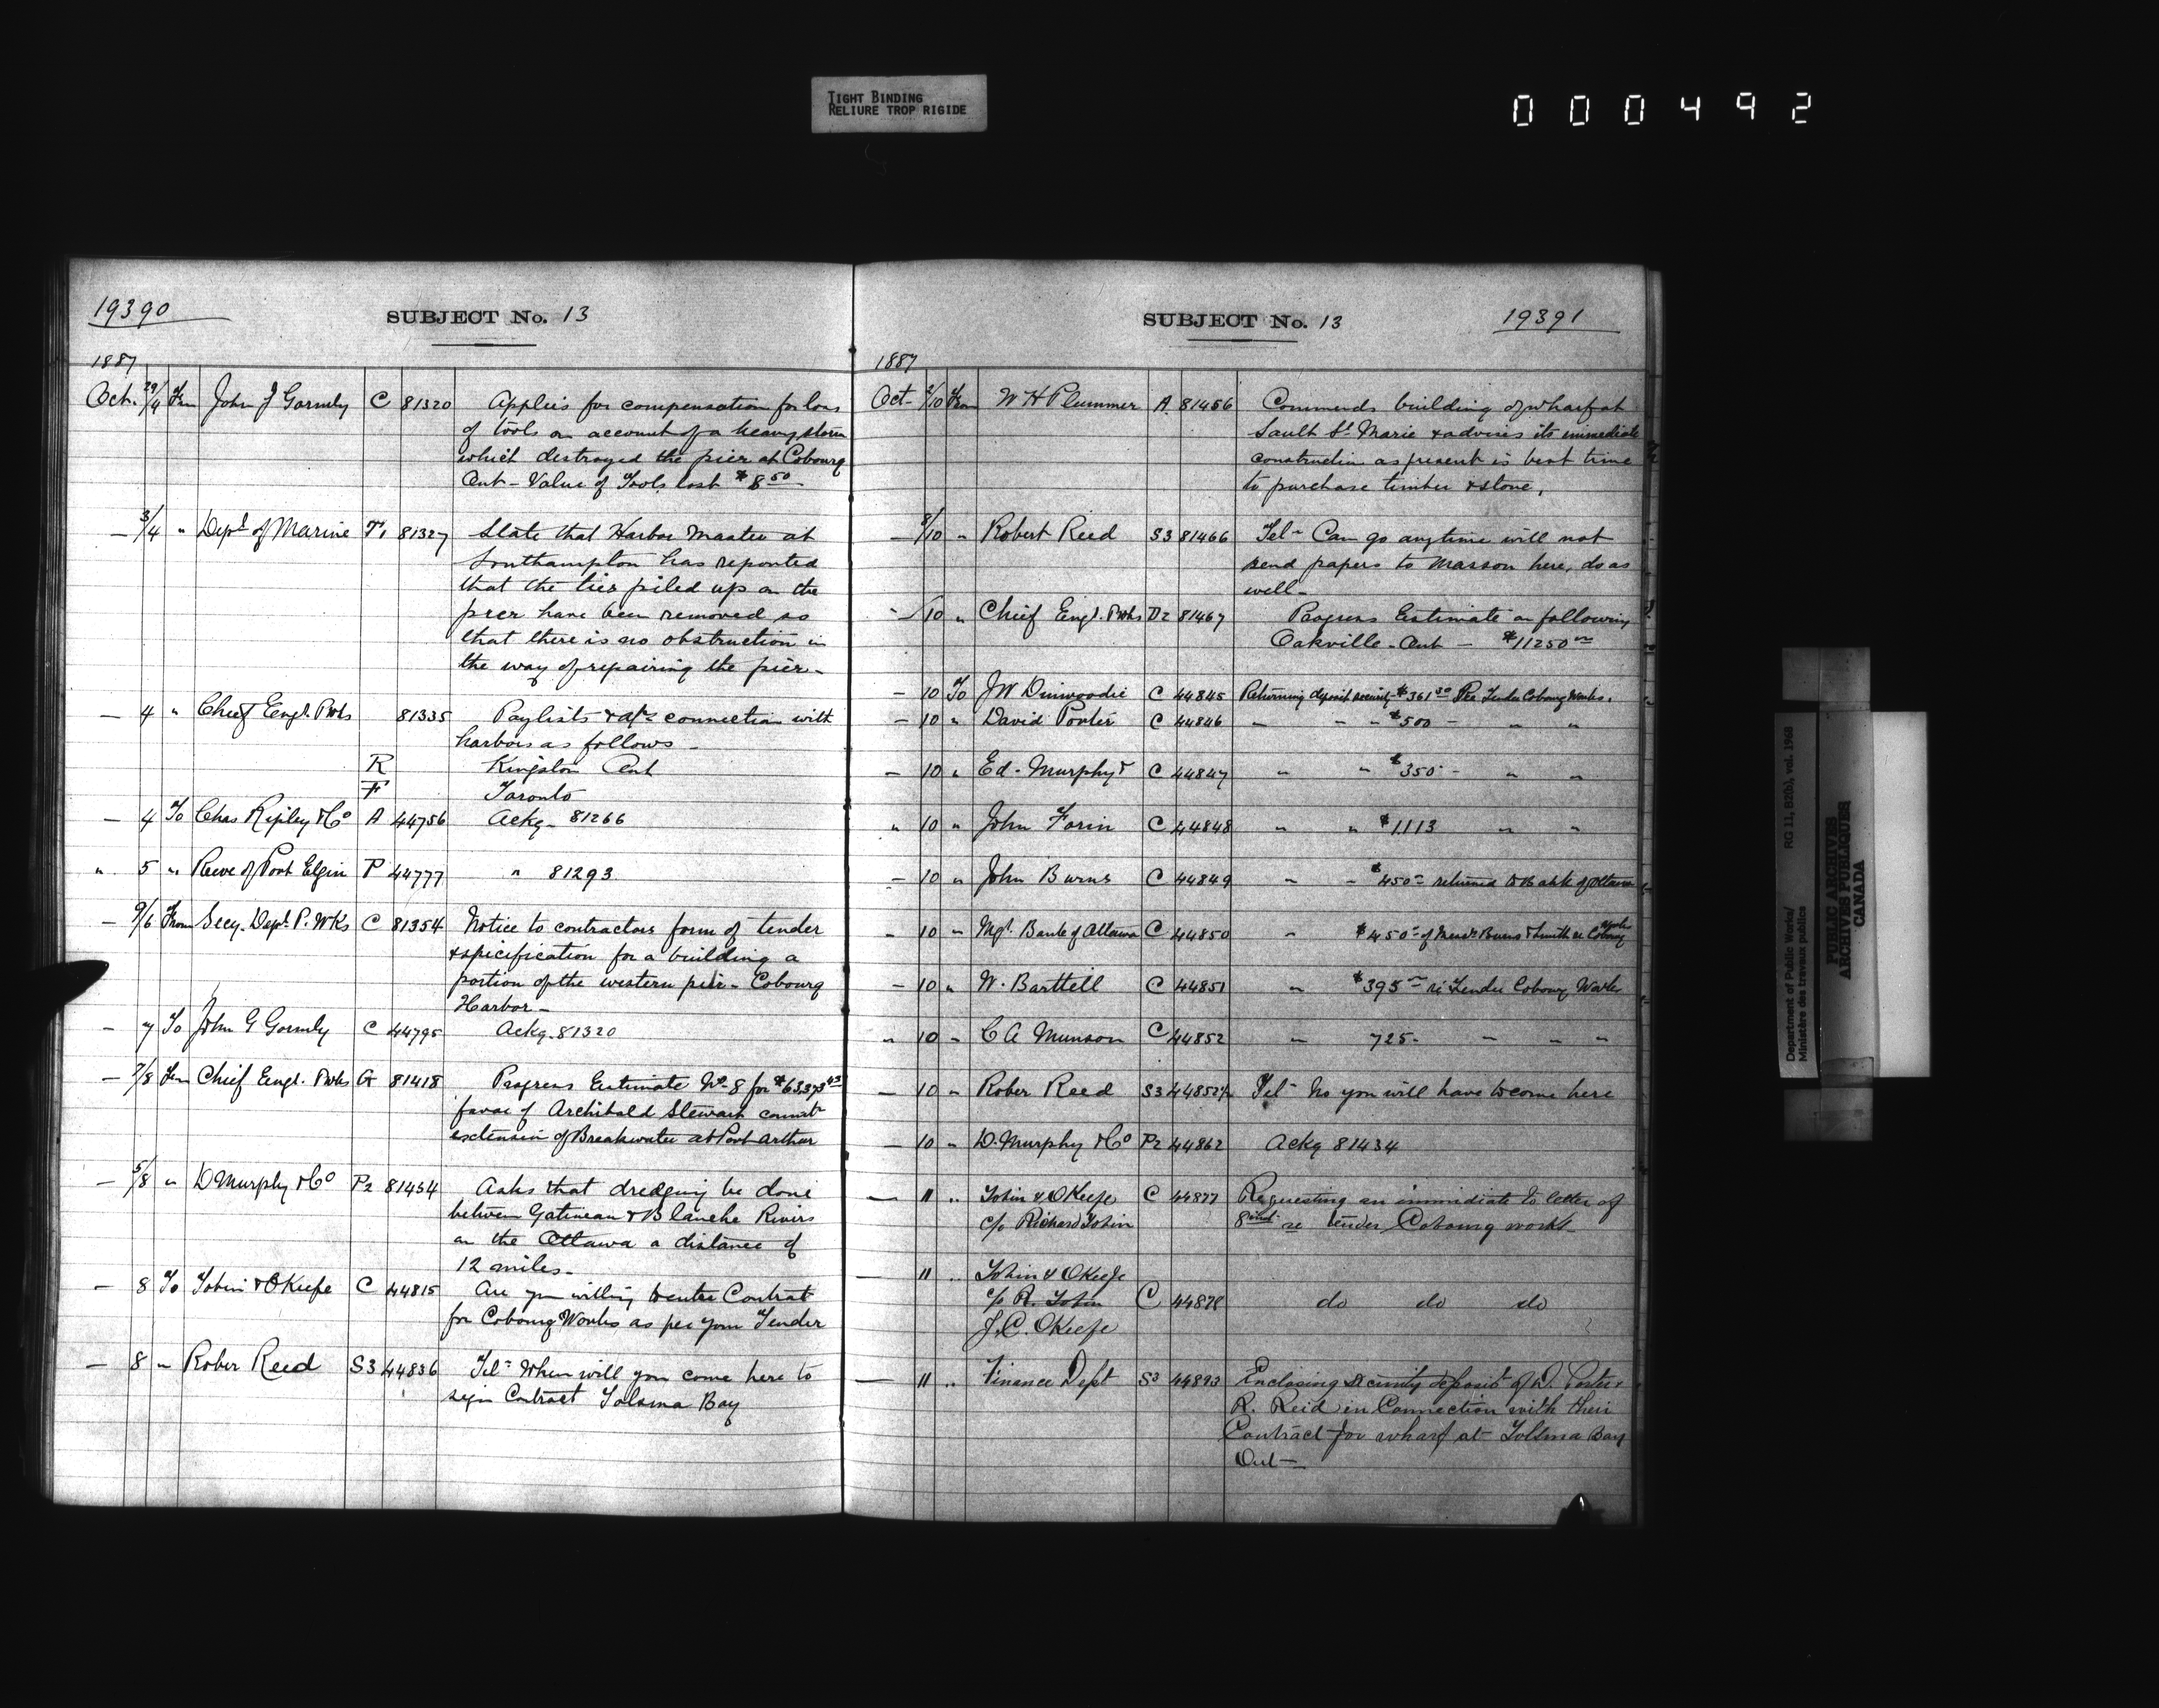 TIGHT BINDING
RELIURE TROP RIGIDE
000492
19390
SUBJECT No. 13
1887
Oct. 29/4 From John J Gormly C 81320 Applies for compensation for loss
of tools on account of a heavy storm
which destroyed the pier at Cobourg
Ont - Value of Tools lost $8 50
— 3/4 " Dept of Marine 81327 State that Harbor Master at
Southampton has reported
that the ties piled up on the
pier have been removed so
that there is no obstruction in
the way of repairing the pier -
— 4 " Chief Engr. P Wks 81335 Paylists & a/cs connection with
harbors as follows -
R Kingston Ont
F Toronto
— 4 To Chas Ripley & Co A 44756 Ackg - 81266
" 5 " Reeve of Port Elgin P 44777 " 81293
— 9/6 From Secy. Dept. P. Wks C 81354 Notice to contractors form of tender
& spicification for a building a
portion of the western pier - Cobourg
Harbor -
— 7 To John G Gormly C 44795 Ackg. 81320
— 7/8 From Chief Engr. P Wks 81418 Progress Estimate No 8 for
favor of Archibald Stewart
extension of Breakwater at Port Arthur
— 5/8 " D Murphy & Co P2 81434 Asks that dredging be done
between Gatineau & Blanche Rivers
on the Ottawa a distance of
12 miles -
— 8 To Tobin & OKeefe C 44815 Are you willing to enter Contract
for Cobourg Works as per your Tender
— 8 " Rober Reed S3 44836 Tel - When will you come here to
sign Contract Tolsma Bay
SUBJECT No. 13
19391
1887
Oct - /10 From W H Plummer A 81456 Commends building of wharf at
Sault St. Marie & advises its immediate
construction as present is best time
to purchase timber & stone,
— 8/10 " Robert Reed S3 81466 Tel - Can go anytime will not
send papers to Masson here, do as
well -
— /10 " Chief Engr. P Wks D2 81467 Progress Estimate on following
Oakville - Ont - $11250
— 10 To J W Dinwoodie C 44845 Returning deposit $361 50 Per Tender Cobourg Works.
— 10 " David Porter C 44846 " " " $500 - " "
— 10 " Ed - Murphy C 44847 " " $350 - " "
" 10 " John Forin C 44848 " " $1113 " "
— 10 " John Burns C 44849 " " $450 - returned to Bank of Ottawa
— 10 " Mgr. Bank of Ottawa C 44850 " $450 - of Messrs Burns & Smith re Cobourg Works
— 10 " W. Barttell C 44851 " $395 - re Tender Cobourg Works
" 10 " C A Munson C 44852 " 725 - " " "
— 10 " Rober Reed S3 44852½ Tel - No you will have to come here
— 10 " D. Murphy & Co P2 44862 Ackg 81434
— 11 " Tobin & OKeefe C 44877 Requesting an immediate to letter of
c/o Richard Tobin 8 inst re tender Cobourg works -
— 11 " Tobin & OKeefe
c/o R. Tobin C 44878 do do do
J. C. OKeefe
— 11 " Finance Dept S3 44893 Enclosing security deposit of D. Porter &
R. Reid in Connection with their
Contract for wharf at Tolsma Bay
Ont —
Department of Public Works/ RG 11, B2(b), vol. 1968
Ministère des travaux publics
PUBLIC ARCHIVES
ARCHIVES PUBLIQUES
CANADA